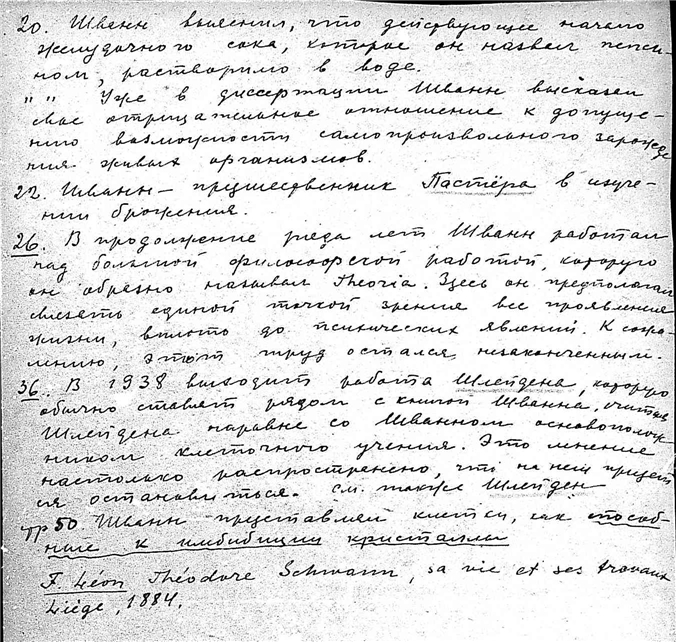 20. Шванн выяснил, что действующее начало
желудочного сока, которое он назвал пепси-
ном, растворимо в воде.
" " Уже в диссертации Шванн высказал
свое отрицательное отношение к допуще-
нию возможности самопроизвольного зарожде
ния живых организмов.
22. Шванн – предшественник Пастёра в изуче-
нии брожения.
26. В продолжение ряда лет Шванн работал
над большой философской работой, которую
он образно называл Theoria. Здесь он предполагал
связать единой точкой зрения все проявления
жизни, вплоть до психических явлений. К сожа-
лению, этот труд остался незаконченным.
36. В 1938 выходит работа Шлейдена, которую
обычно ставят рядом с книгой Шванна, считая
Шлейдена наравне со Шванном основополож-
ником клеточного учения. Это мнение
настолько распространено, что на нем придет
ся остановиться. см. также Шлейден
стр 50 Шванн представлял клетки, как способ-
ные к имбибиции кристаллы
F. Léon Théodore Schwann, sa vie et ses travaux
Liége, 1884.